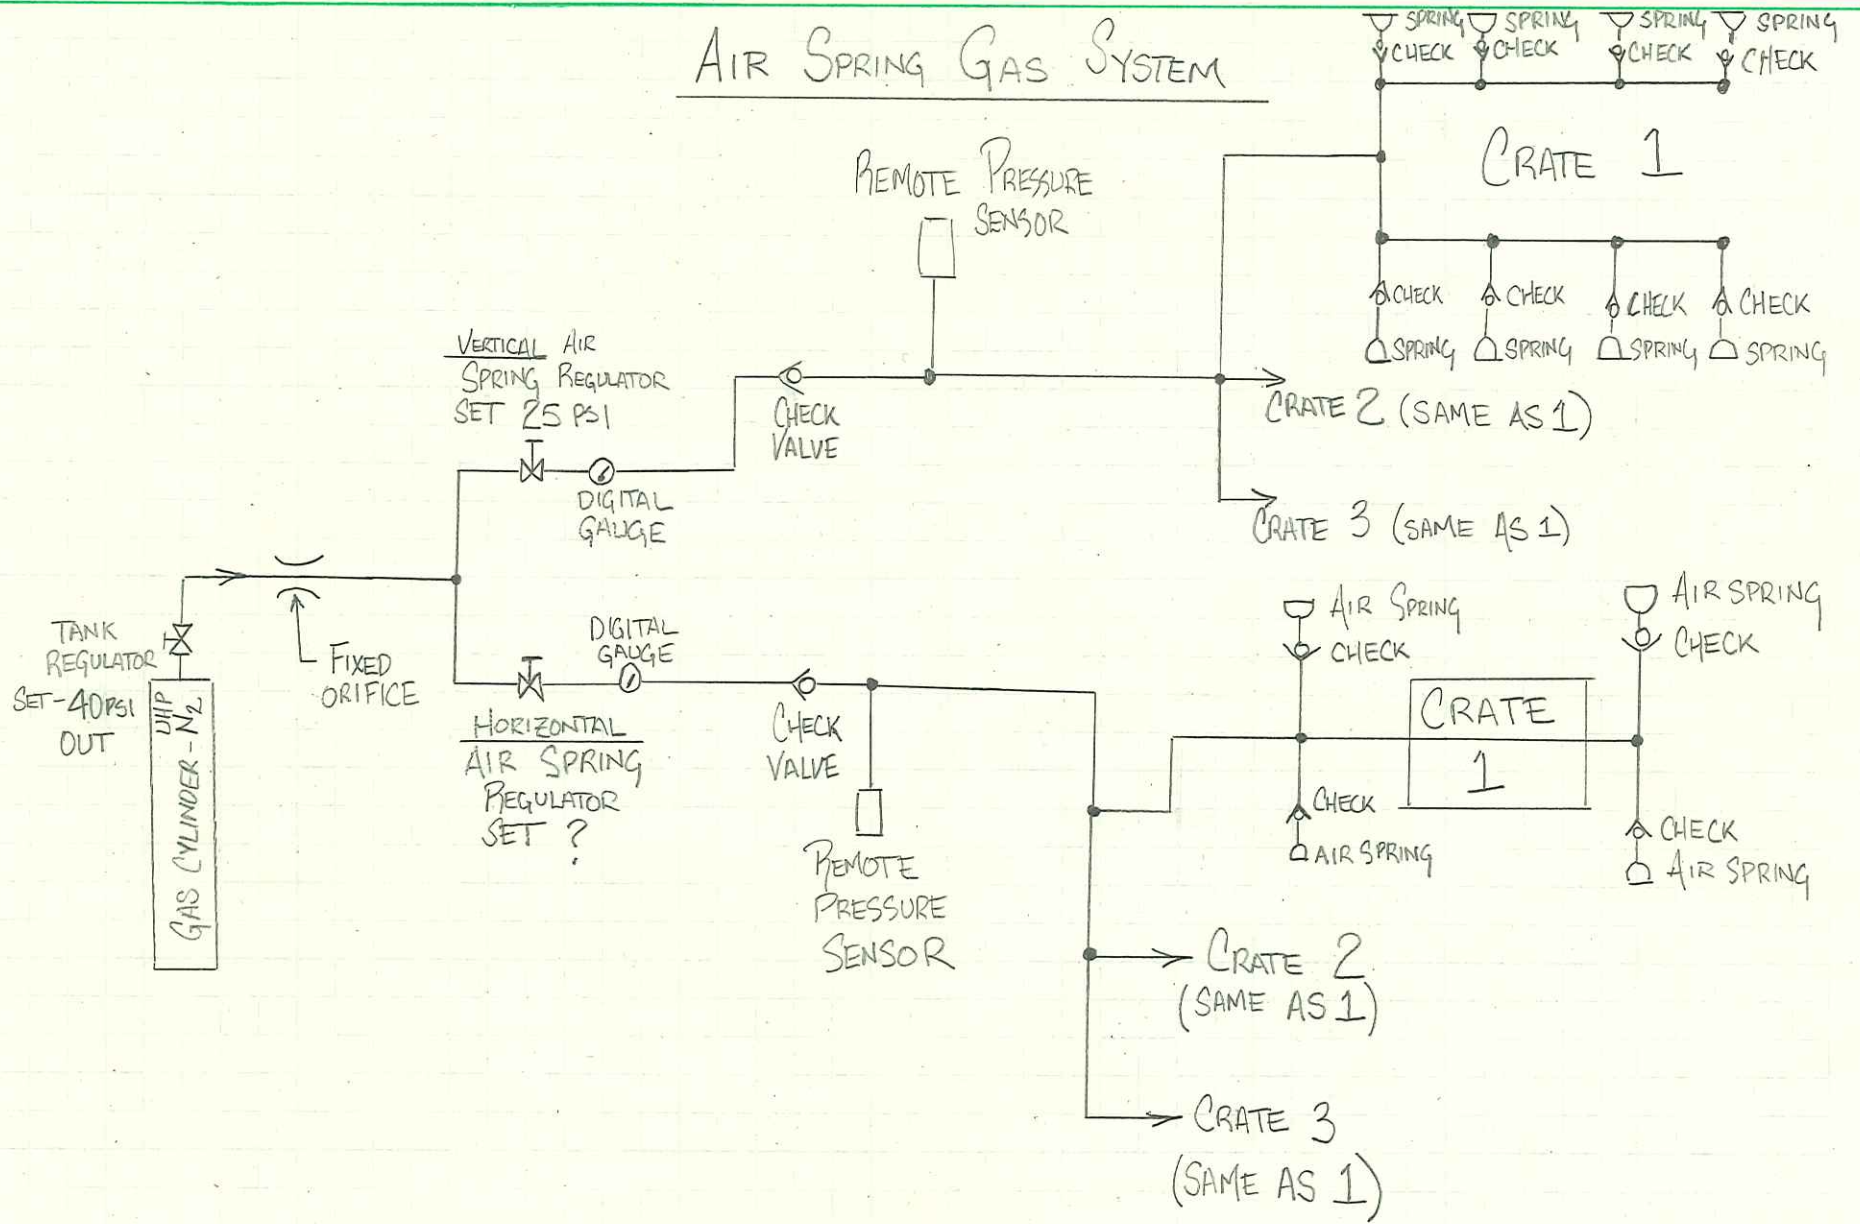 AIR SPRING GAS SYSTEM
SPRING SPRING SPRING SPRING
CHECK CHECK CHECK CHECK
CRATE 1
CHECK CHECK CHECK CHECK
SPRING SPRING SPRING SPRING
REMOTE PRESSURE
SENSOR
VERTICAL AIR
SPRING REGULATOR
SET 25 PSI
DIGITAL
GAUGE
CHECK
VALVE
CRATE 2 (SAME AS 1)
CRATE 3 (SAME AS 1)
TANK
REGULATOR
SET-40PSI
OUT
UHP
GAS CYLINDER-N2
FIXED
ORIFICE
DIGITAL
GAUGE
HORIZONTAL
AIR SPRING
REGULATOR
SET ?
CHECK
VALVE
REMOTE
PRESSURE
SENSOR
AIR SPRING
CHECK
AIR SPRING
CHECK
CRATE
1
CHECK
AIR SPRING
CHECK
AIR SPRING
CRATE 2
(SAME AS 1)
CRATE 3
(SAME AS 1)